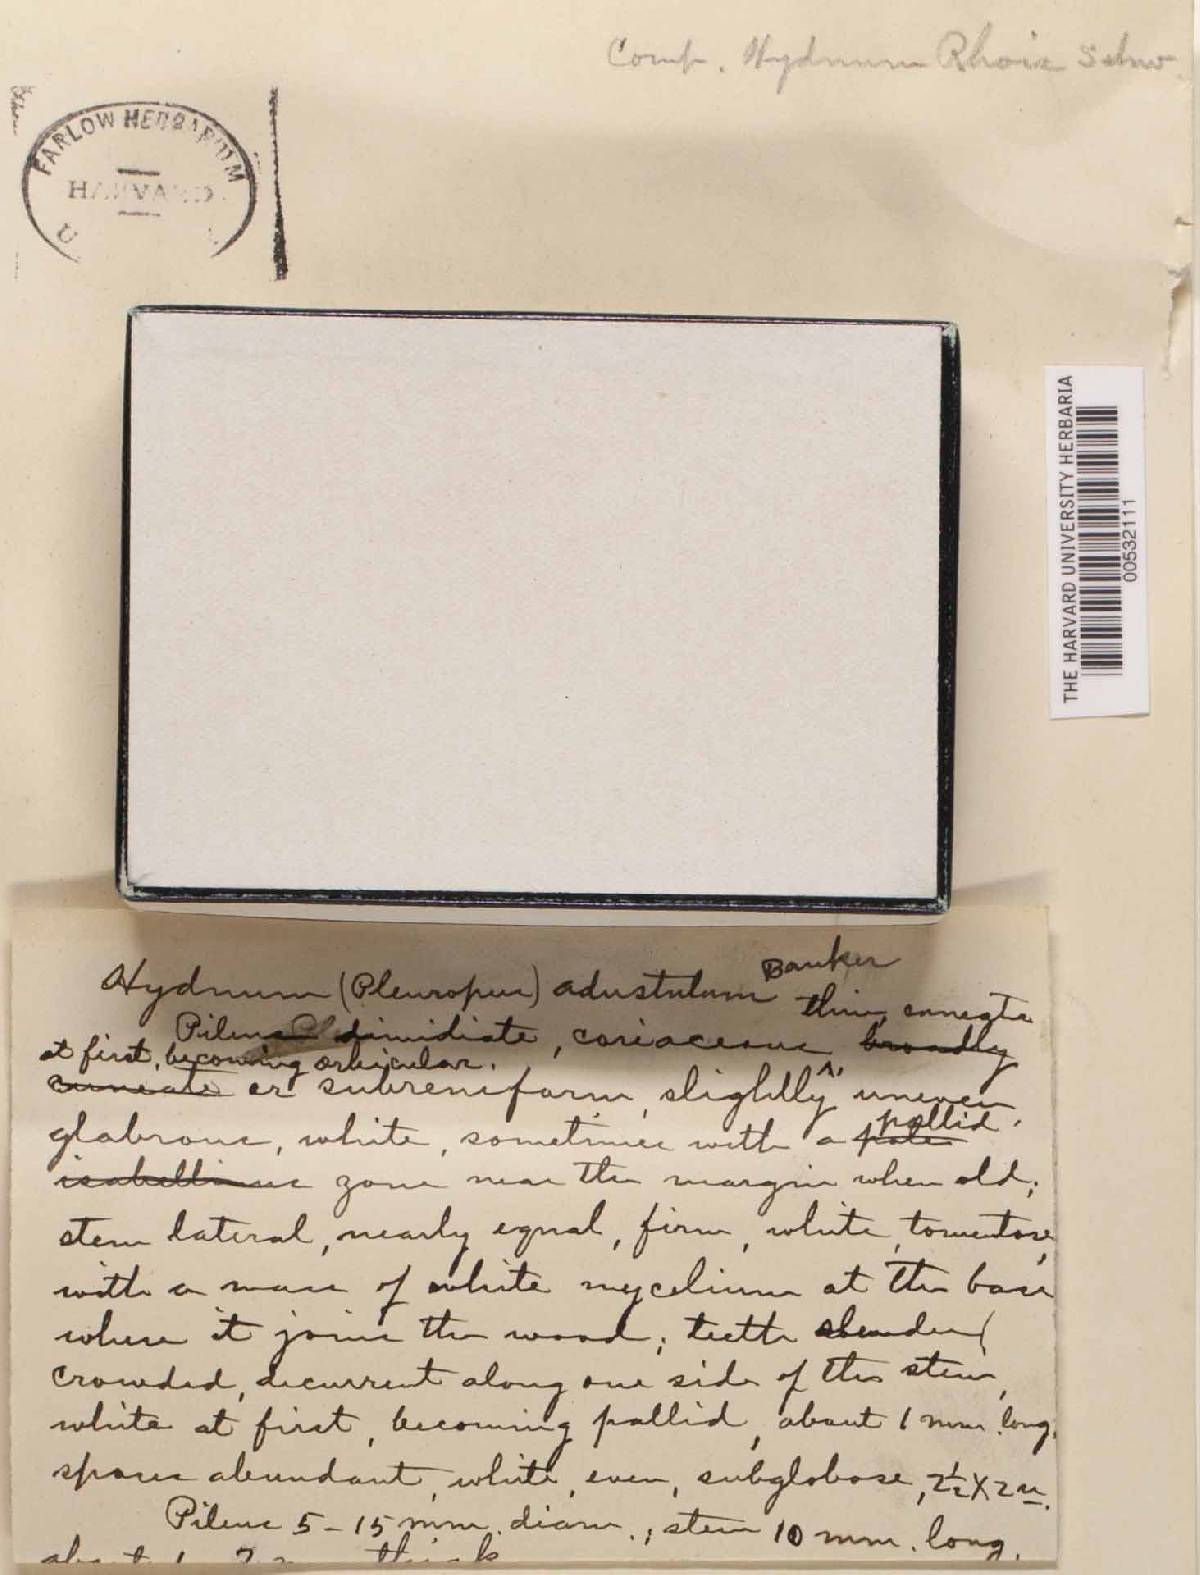 Comp. Hydnum Rhois Schw.
FARLOW HERBARIUM
HARVARD
U
THE HARVARD UNIVERSITY HERBARIA
00532111
Hydnum (Pleuropus) adustulum Banker
thin, cuneate
Pileus dimidiate, coriaceous broadly
at first, becoming orbicular.
cuneate or subreniform, slightly uneven
pallid.
glabrous, white, sometimes with a pale
isabelline zone near the margin when old;
stem lateral, nearly equal, firm, white, tomentose,
with a mass of white mycelium at the base
where it joins the wood; teeth slender
crowded, decurrent along one side of the stem,
white at first, becoming pallid, about 1 mm. long.
spores abundant, white, even, subglobose, 2½ X 2 u.
Pileus 5-15 mm. diam.; stem 10 mm. long,